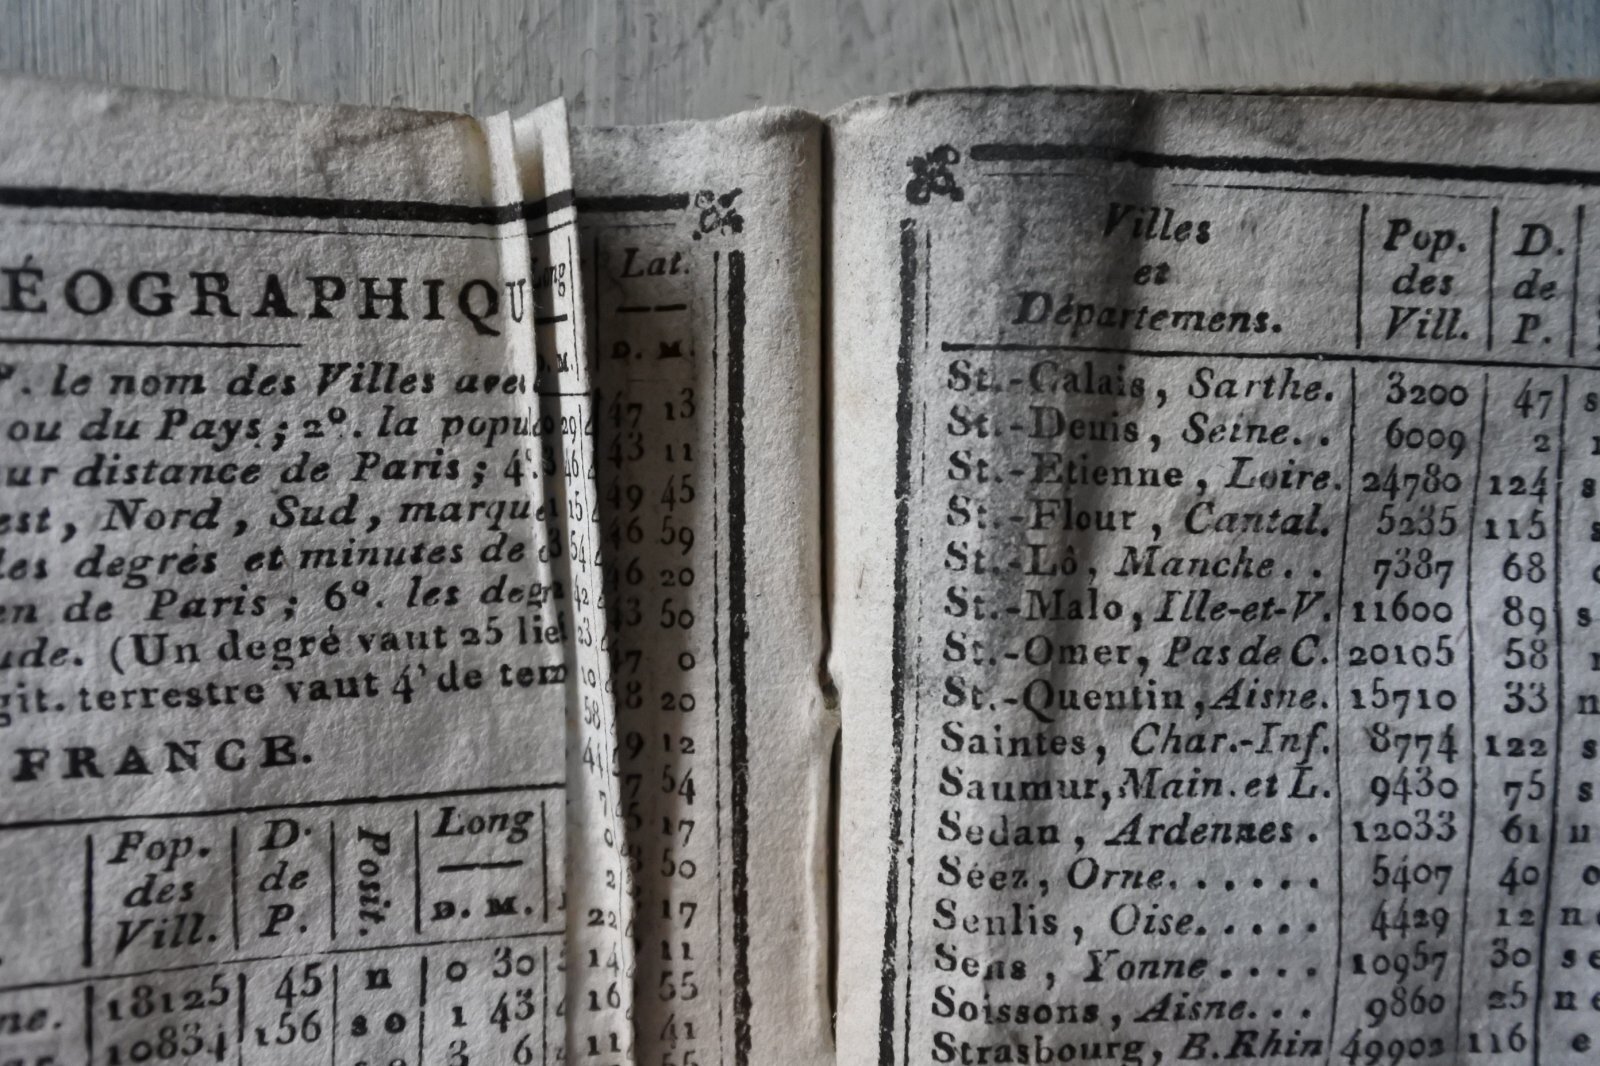 ÉOGRAPHIQU
le nom des Villes
ou du Pays; 2º. la popu
ur distance de Paris; 4º.
est, Nord, Sud, marqu
les degrès et minutes de
en de Paris; 6º. les deg
ude. (Un degré vaut 25 lie
git. terrestre vaut 4' de tem
FRANCE.
Pop. des Vill. D. de P. Posit. Long D. M.
18125 45 n 0 30
10834 156 s o 1 43
3 6
Long Lat.
D. M.
47 13
43 11
49 45
46 59
46 20
43 50
47 0
48 20
49 12
54
17
50
17
11
55
41
Villes et Départemens. Pop. des Vill. D. de P.
St.-Calais, Sarthe. 3200 47 s
St.-Denis, Seine. . 6009 2
St.-Etienne, Loire. 24780 124 s
St.-Flour, Cantal. 5235 115 s
St.-Lô, Manche. . 7387 68 o
St.-Malo, Ille-et-V. 11600 89 s
St.-Omer, Pas de C. 20105 58
St.-Quentin, Aisne. 15710 33 n
Saintes, Char.-Inf. 8774 122 s
Saumur, Main. et L. 9430 75 s
Sedan, Ardennes . 12033 61 n
Séez, Orne. . . . . . 5407 40 o
Senlis, Oise. . . . . 4429 12 n
Sens, Yonne . . . . 10957 30 s e
Soissons, Aisne. . . 9860 25 n e
Strasbourg, B. Rhin 49902 116 e